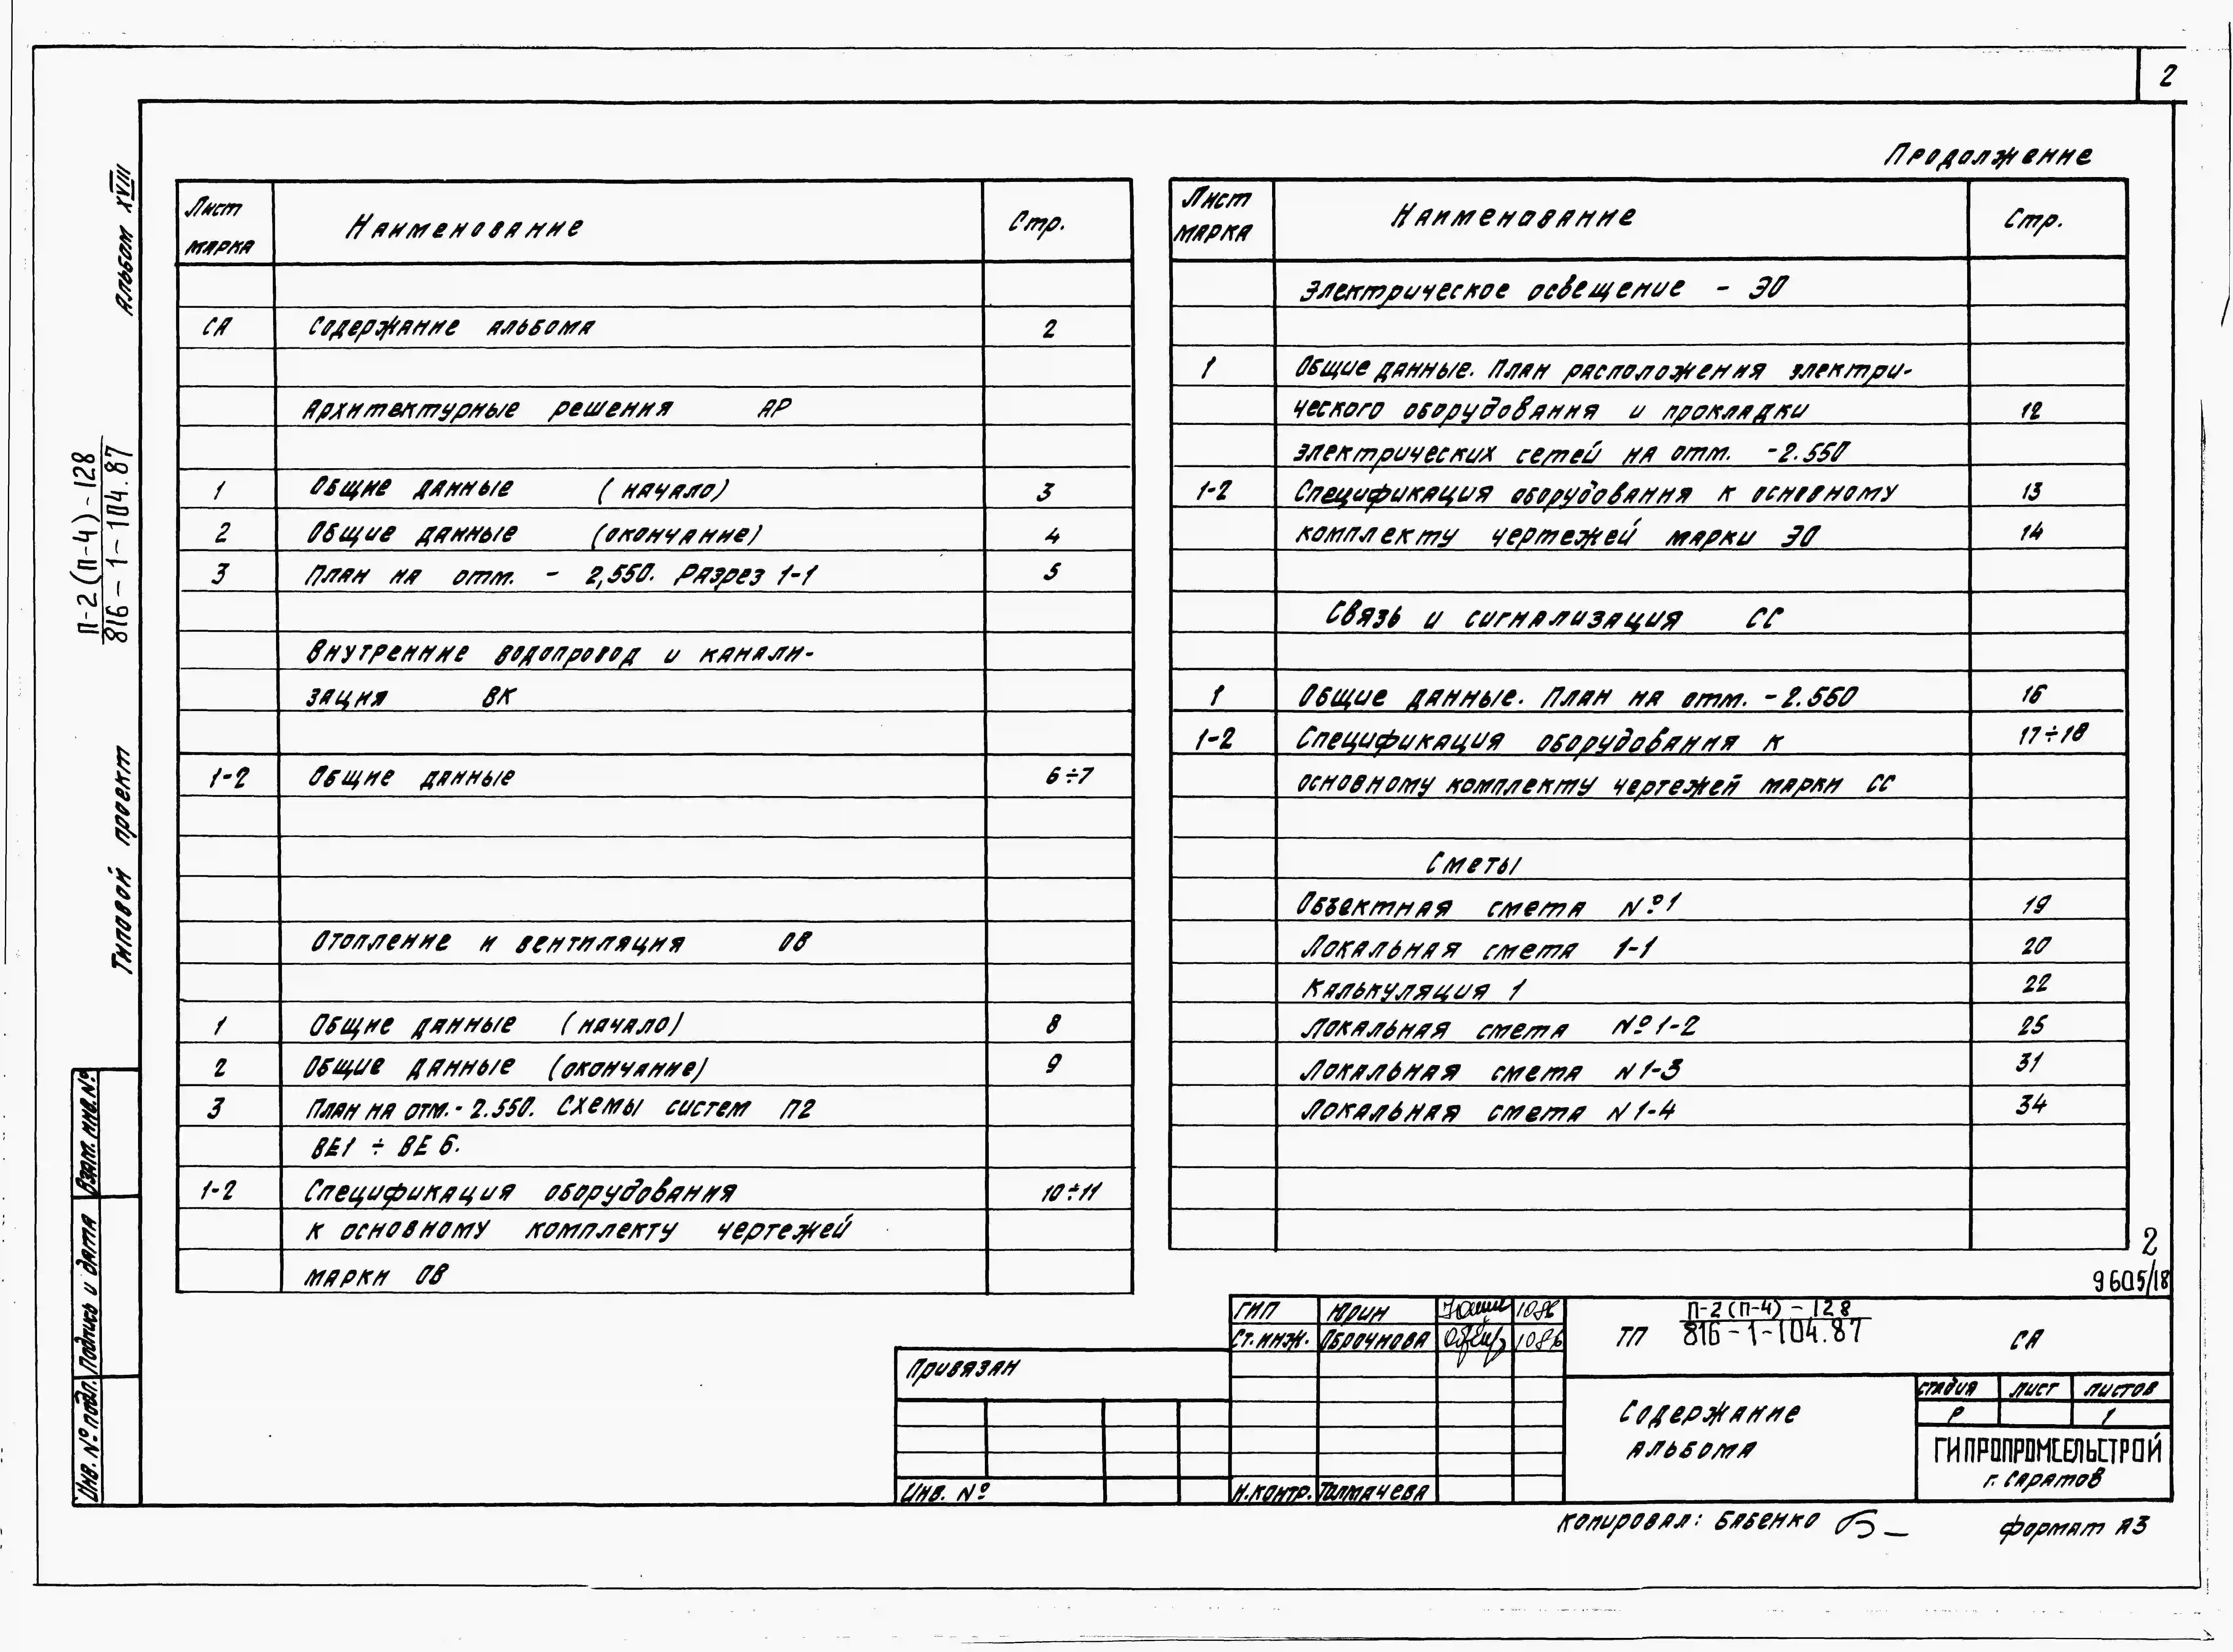 2
Продолжение
Альбом XVIII
П-2(П-4)-128
816-1-104.87
Типовой проект
Взам. инв. №
Подпись и дата
Инв. № подл.
Лист марка Наименование Стр.
СА Содержание альбома 2
Архитектурные решения АР
1 Общие данные (начало) 3
2 Общие данные (окончание) 4
3 План на отм. - 2,550. Разрез 1-1 5
Внутренние водопровод и канали-
зация ВК
1-2 Общие данные 6÷7
Отопление и вентиляция ОВ
1 Общие данные (начало) 8
2 Общие данные (окончание) 9
3 План на отм. - 2.550. Схемы систем П2
ВЕ1 ÷ ВЕ 6.
1-2 Спецификация оборудования 10÷11
к основному комплекту чертежей
марки ОВ
Лист марка Наименование Стр.
Электрическое освещение - ЭО
1 Общие данные. План расположения электри-
ческого оборудования и прокладки 12
электрических сетей на отм. -2.550
1-2 Спецификация оборудования к основному 13
комплекту чертежей марки ЭО 14
Связь и сигнализация СС
1 Общие данные. План на отм. -2.550 16
1-2 Спецификация оборудования к 17÷18
основному комплекту чертежей марки СС
Сметы
Объектная смета №1 19
Локальная смета 1-1 20
Калькуляция 1 22
Локальная смета №1-2 25
Локальная смета N1-3 31
Локальная смета N1-4 34
2
9605/18
ГИП Юрин 1086
Ст.инж. Оброчнова 1086
Н.контр. Толмачева
Привязан
Инв. №
ТП П-2(П-4)-128
816-1-104.87 СА
Содержание
альбома
стадия лист листов
Р 1
ГИПРОПРОМСЕЛЬСТРОЙ
г. Саратов
Копировал: Бабенко
Формат А3